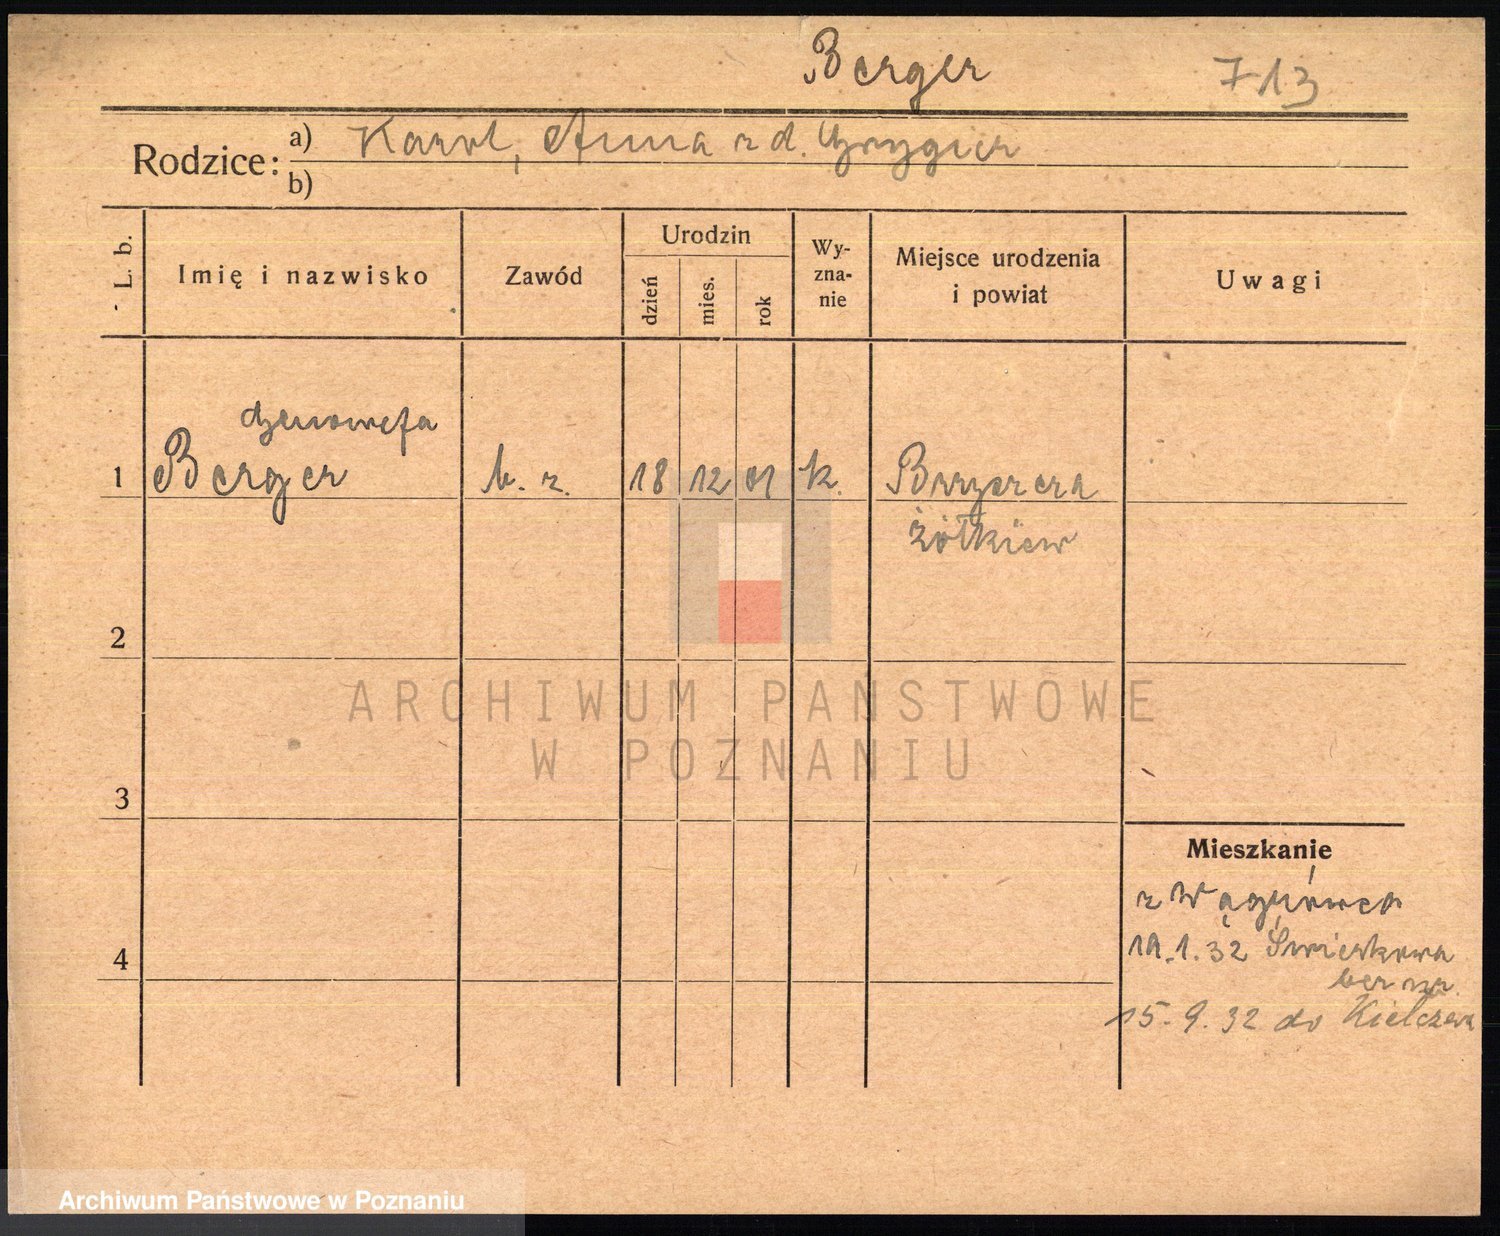 Berger 713
Rodzice: a) Karol, Anna z d. Grygier
b)
L. b.
Imię i nazwisko
Zawód
Urodzin
dzień
mies.
rok
Wy-
zna-
nie
Miejsce urodzenia
i powiat
Uwagi
Genowefa
1 Berger b. z. 18 12 01 k.
Żółkiew
2
3
4
Mieszkanie
z Wągrówca
.1.32
15.9.32 do Kiełczewa
ARCHIWUM PAŃSTWOWE
W POZNANIU
Archiwum Państwowe w Poznaniu